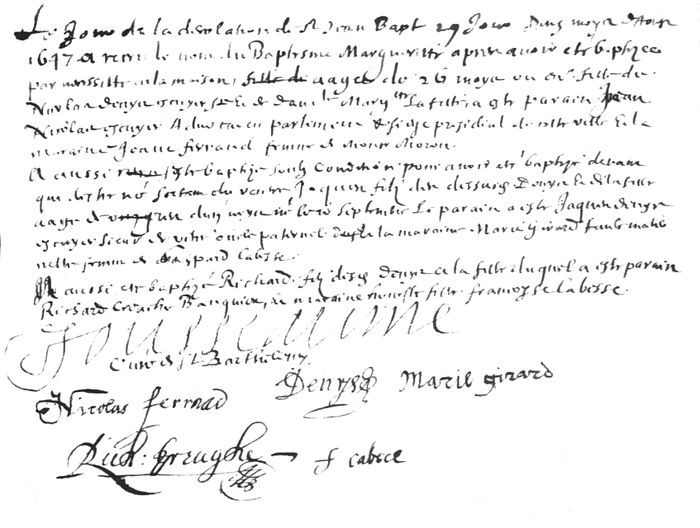 Le Jour de la decolation de St Jean Bapt 29 Jour du moys d'Aout
1647 a receu le nom du Baptesme Margueritte apres avoir esté baptizee
par necessitte en la maison, aagee de 26 moys ou en. fille de
Nicolas Denys escuyer et de dam.lle Marg.tte Lafitte a este parain Jean
Nicolas escuyer Advocat en parlement & siege presidial de cette ville et la
maraine Jeane ferrand femme de Monsr Moron.
A aussi este baptize soubz Condition pour avoir esté baptizé devant
que d'estre né sortant du ventre Jaques filz des dessusd Denys et de lafitte
aage de d'un moys né le 10 Septembre Le parain a este Jaques denys
escuyer sieur de vitre oncle paternel et la maraine Marie Girard tante maternelle
femme de Gaspard Cabesse.
A aussi esté baptizé Richard filz desd denys et lafitte duquel a este parain
Richard Creaghe Banquier, la maraine fille françoyse Cabesse.
Toussedime
Curé de St Barthelemy.
Denys Marie girard
Nicolas ferrand
Rich: Creaghe f cabece